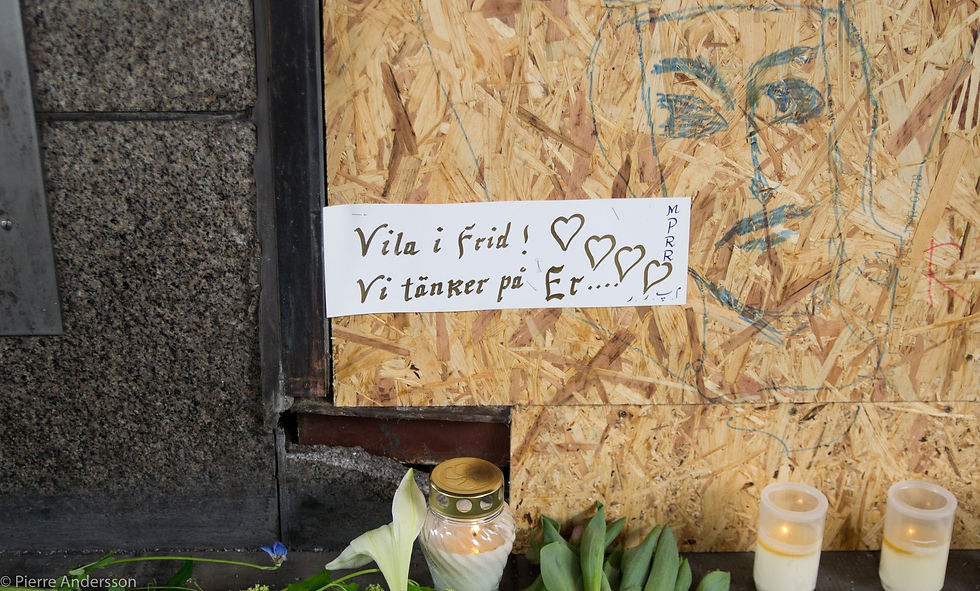 Vila i Frid!
Vi tänker på Er....
M
P
R
R
© Pierre Andersson